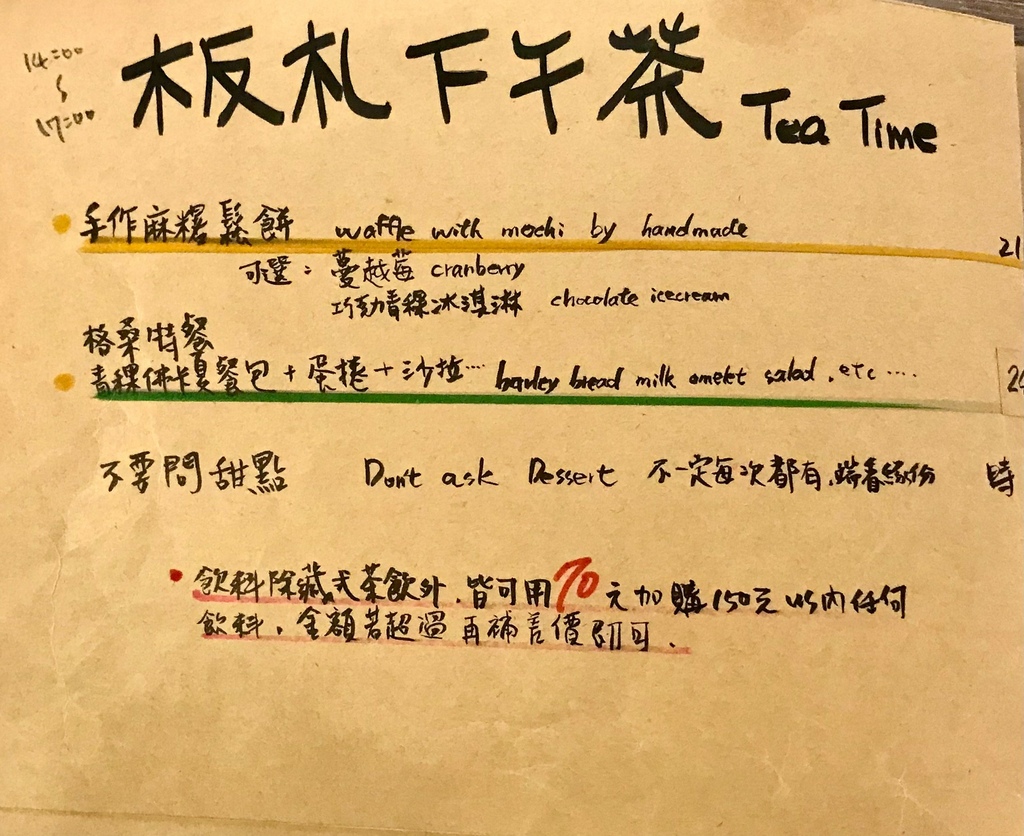 14:00
~
17:00
板札下午茶 Tea Time
手作麻糬鬆餅 waffle with mochi by handmade 21
可選：蔓越莓 cranberry
巧克力青稞冰淇淋 chocolate icecream
格桑特餐
青稞佛卡夏餐包+蛋捲+沙拉... barley bread milk omelet salad, etc .... 2
不要問甜點 Don't ask Dessert 不一定每次都有,端看緣份 時
飲料除藏式茶飲外,皆可用70元加購150元以內任何
飲料,金額若超過再補差價即可.